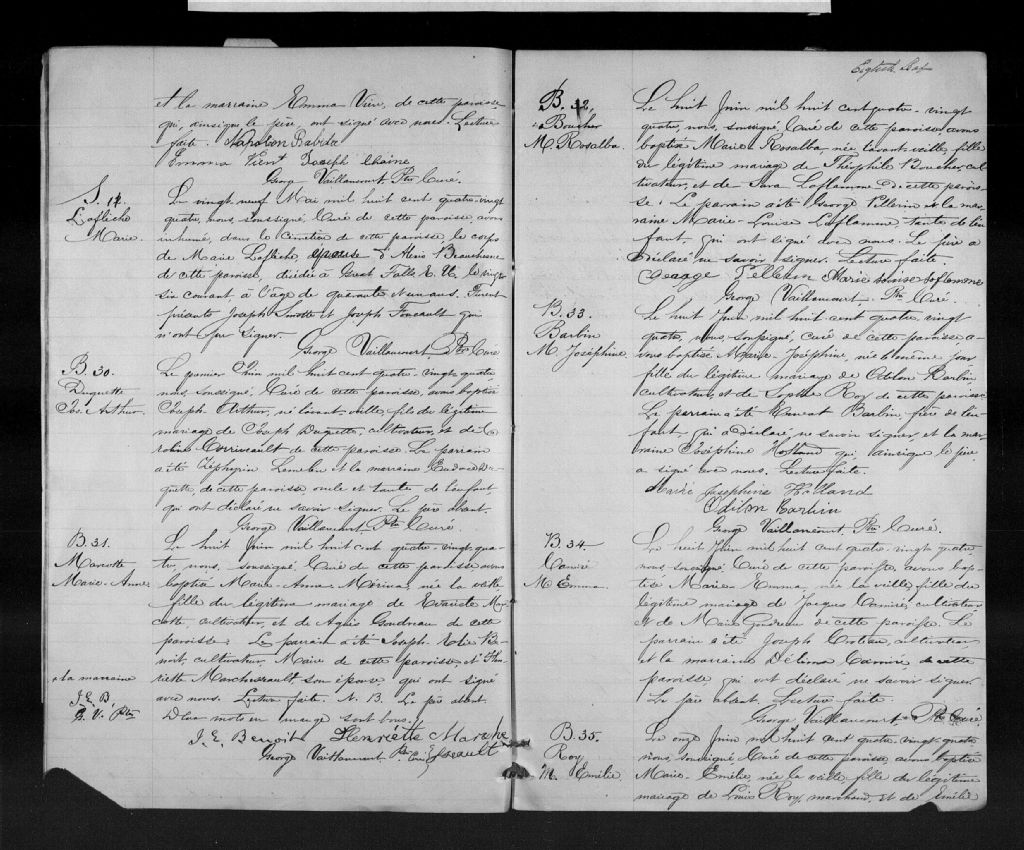 et la marraine Emma Vien, de cette paroisse
qui, ainsique le père, ont signé avec nous. Lecture
faite. Napoléon Rabida
Emma Vient Joseph Chainé
George Vaillancourt Ptre Curé.
S. 14.
Laflèche
Marie.
Le vingt neuf Mai mil huit cent quatre-vingt
quatre, nous, soussigné, Curé de cette paroisse, avons
inhumé, dans le Cimetière de cette paroisse, le corps
de Marie Laflèche, épouse d'Alexis Beauchesne
de cette paroisse, décédée à Great Falls E. U., le vingt
six courant, à l'âge de quarante et un ans. Furent
présents Joseph et Joseph Foucault qui
n'ont su signer.
George Vaillancourt, Ptre Curé
B. 30.
Duquette
Jos. Arthur.
Le premier Juin mil huit cent quatre-vingt-quatre
nous, soussigné, Curé de cette paroisse, avons baptisé
Joseph Arthur, né l'avant veille, fils du légitime
mariage de Joseph Duquette, cultivateur, et de Ca
roline Corriveault de cette paroisse. Le parrain
a été Zéphyrin Lemelin et la marraine Du
quette, de cette paroisse, oncle et tante de l'enfant,
qui ont déclaré ne savoir signer. Le père absent.
George Vaillancourt, Ptre Curé.
B. 31.
Marcotte
Marie-Anne
Le huit Juin mil huit cent quatre-vingt-qua-
tre, nous, soussigné Curé de cette paroisse avons
baptisé Marie-Anna-Mérina, née la veille
fille du légitime mariage de Evariste Mar-
cotte, cultivateur, et de Agnès Goudreau de cette
paroisse. Le parrain a été Joseph Be-
noit, cultivateur, Maire de cette paroisse, et Hen-
riette Marchesseault, son épouse qui ont signé
avec nous. Lecture faite. N. B. Le père absent.
Deux mots en marge sont bons.
et la marraine
J. E. B.
G. V. Ptre
J. E. Benoit Henriette Marche
George Vaillancourt Ptre Curé sseault
Eighteenth leaf
B. 32,
Boucher
M. Rosalba.
Le huit Juin mil huit cent quatre-vingt
quatre, nous, soussigné, Curé de cette paroisse, avons
baptisé Marie Rosalba, née l'avant-veille, fille
du légitime mariage de Théophile Boucher, cul-
tivateur, et de Sara Laflamme de cette parois-
se. Le parrain a été George Pellerin et la mar-
raine Marie-Louise Laflamme tante de l'en-
fant, qui ont signé avec nous. Le père a
déclaré ne savoir signer. Lecture faite.
George Pellerin Marie Louise Laflamme
George Vaillancourt Ptre Curé.
B. 33.
Barbin
M. Joséphine.
Le huit Juin mil huit cent quatre-vingt
quatre, nous, soussigné, curé de cette paroisse a-
vons baptisé Marie-Joséphine, née le même jour
fille du légitime mariage de Odilon Barbin
cultivateur, et de Sophie Roy de cette paroisse
Le parrain a été Barbin, frère de l'en-
fant, qui a déclaré ne savoir signer, et la mar-
raine Joséphine Holland qui, ainsique le père,
a signé avec nous. Lecture faite.
Marie Josephine Holland
Odilon Barbin
George Vaillancourt, Ptre Curé.
B. 34.
Camiré
M. Emma.
Le huit Juin mil huit cent quatre-vingt-quatre
nous soussigné, Curé de cette paroisse, avons bap-
tisé Marie-Emma, née la veille, fille du
légitime mariage de Jacques Camiré, cultivateur
et de Marie Goudreau de cette paroisse. Le
parrain a été Joseph cultivateur
et la marraine Délima Camiré, de cette
paroisse, qui ont déclaré ne savoir signer.
Le père absent. Lecture faite.
George Vaillancourt Ptre Curé
B. 35.
Roy
M. Emélie.
Le onze Juin mil huit cent quatre-vingt-quatre
nous, soussigné Curé de cette paroisse, avons baptisé
Marie-Emélie, née la veille, fille du légitime
mariage de Louis Roy, marchand, et de Emélie